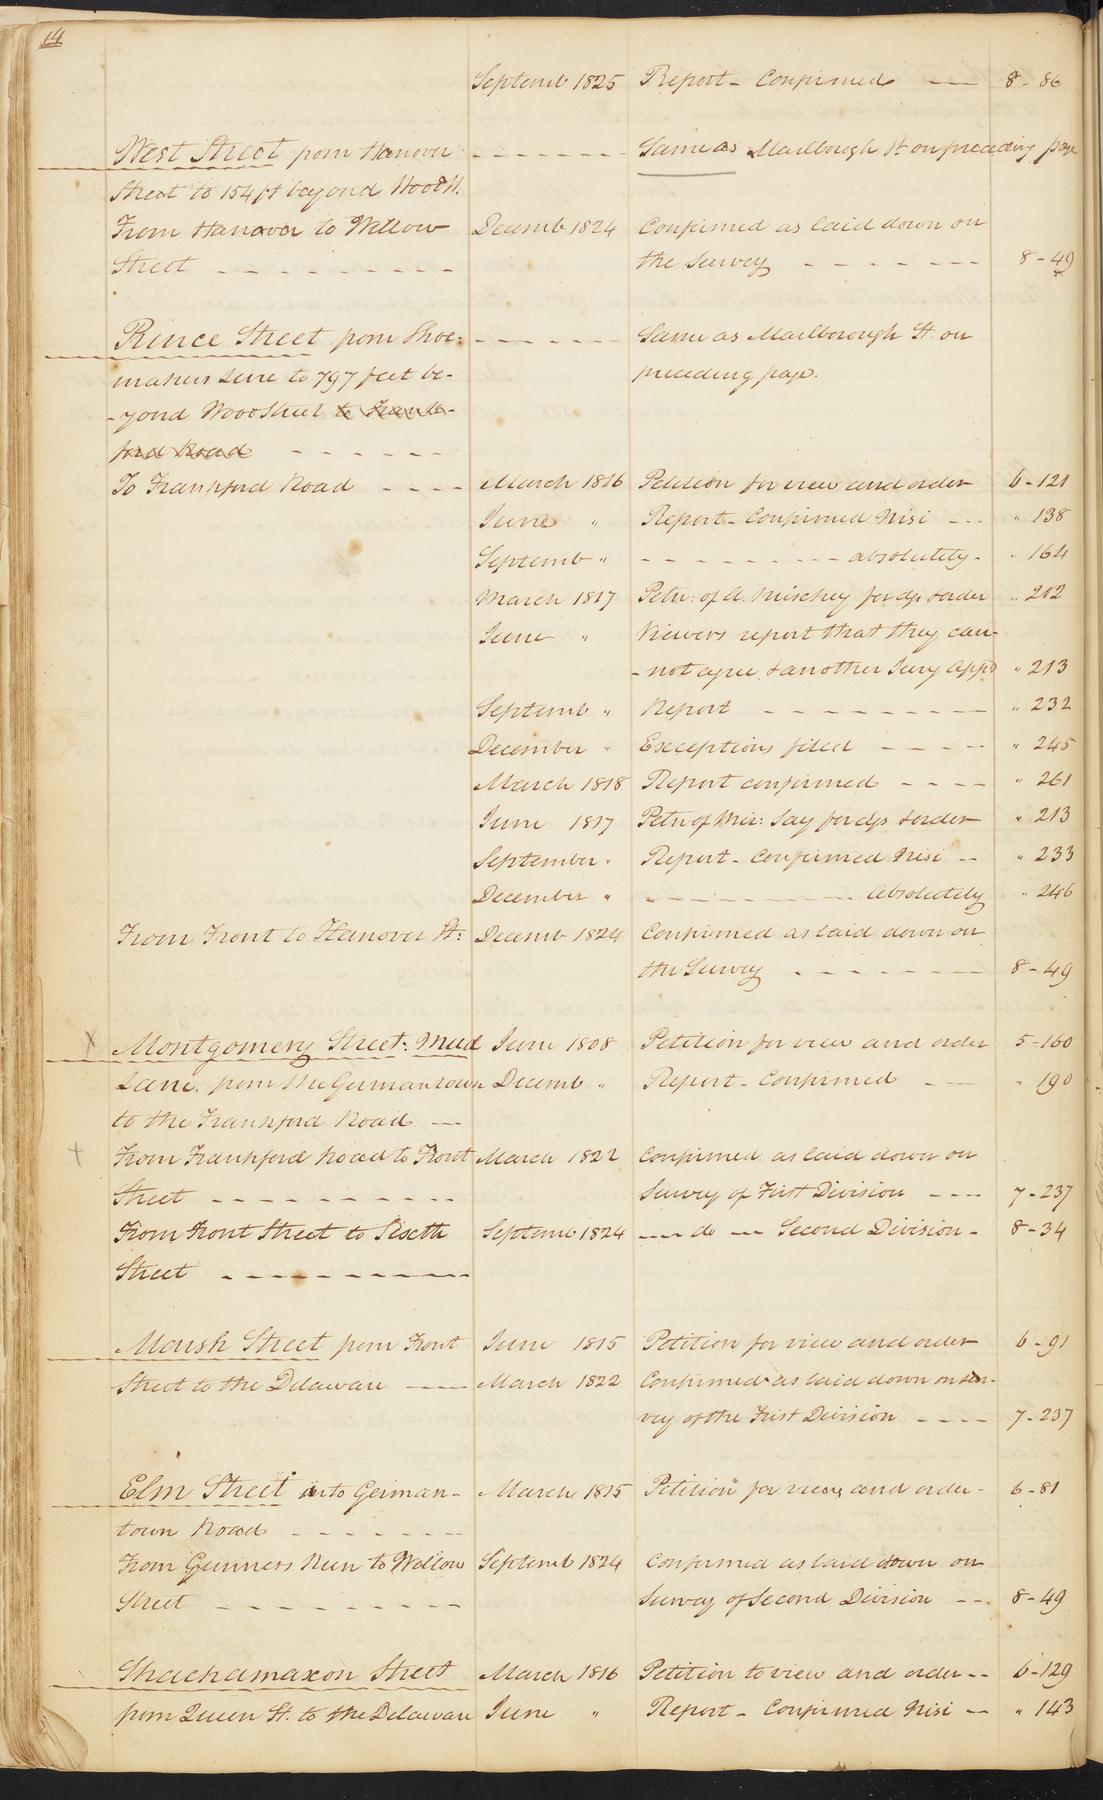 14
Septemb 1825 Report - Confirmed — 8 - 86
West Street from Hanover - - - - - - - Same as Marlborough St. on preceding page
Street to 154 ft beyond Wood St.
From Hanover to Willow Decemb 1824 Confirmed as laid down on
Street - - - - - - - - - the Survey - - - - - - 8 - 49
Prince Street from Shoe- - - - - - - Same as Marlborough St. on
makers Lane to 797 feet be- preceding page.
-yond Wood Street to Frank-
ford Road - - - - - -
To Frankford Road - - - - March 1816 Petition for view and order 6 - 121
June " Report - Confirmed Nisi - - - " 138
Septemb " - - - - - - - - - absolutely - " 164
March 1817 Petn: of A. Mischey for dgs & order " 202
June " Viewers report that they can-
-not agree, & another Jury Appd " 213
Septemb " Report - - - - - - - - - " 232
December " Exceptions filed - - - - " 245
March 1818 Report confirmed - - - - " 261
June 1817 Petn of Mer: Say for dgs & order " 213
September " Report - Confirmed Nisi - - " 233
December " - - - - - - - - - Absolutely " 246
From Front to Hanover St: Decemb 1824 Confirmed as laid down on
the Survey - - - - - - - 8 - 49
x Montgomery Street: Mud June 1808 Petition for view and order 5 - 160
Lane. from the Germantown Decemb " Report - Confirmed - — " 190
to the Frankford Road —
+ From Frankford Road to Front March 1822 Confirmed as laid down on
Street - - - - - - - - - - Survey of First Division - - - - 7 - 237
From Front Street to Sixth Septemb 1824 — do — Second Division - 8 - 34
Street - - - - - - - - - - -
Marsh Street from Front June 1815 Petition for view and order 6 - 91
Street to the Delaware — March 1822 Confirmed as laid down on Sur-
vey of the First Division - - - - 7 - 237
Elm Street into German- March 1815 Petition for view and order - 6 - 81
town Road - - - - - - - -
From Gunners Run to Willow Septemb 1824 Confirmed as laid down on
Street - - - - - - - - - Survey of Second Division - - 8 - 49
Shackamaxon Street March 1816 Petition to view and order - - 6 - 129
from Queen St. to the Delaware June " Report - Confirmed Nisi — " 143